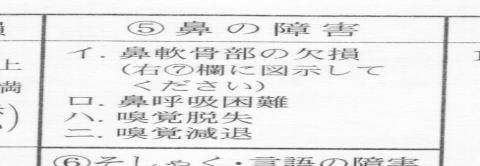 ⑤鼻の障害
イ．鼻軟骨部の欠損
(右⑦欄に図示して
ください)
ロ．鼻呼吸困難
ハ．嗅覚脱失
ニ．嗅覚減退
⑥そしゃく・言語の障害
上
満